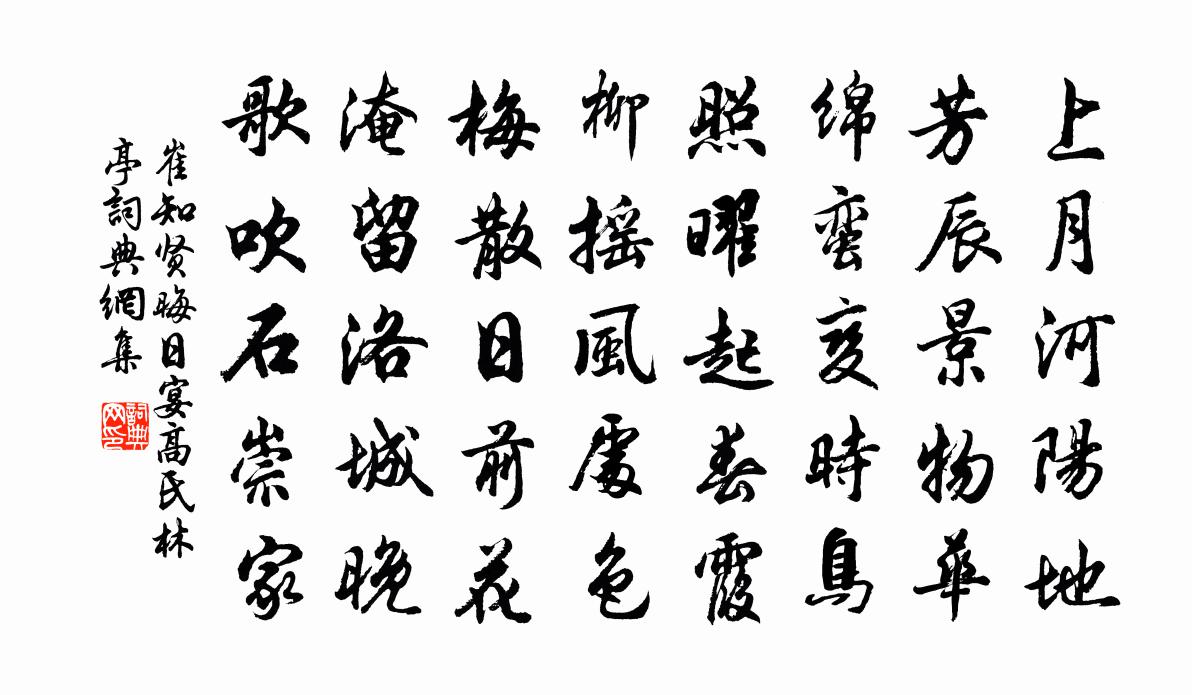 上月河陽地
芳辰景物華
绵蛮变時鳥
照曜起春霞
柳摇風處色
梅散日前花
淹留洛城晚
歌吹石崇家
崔知贤晦日宴高氏林
亭詞典網集
詞典
网印